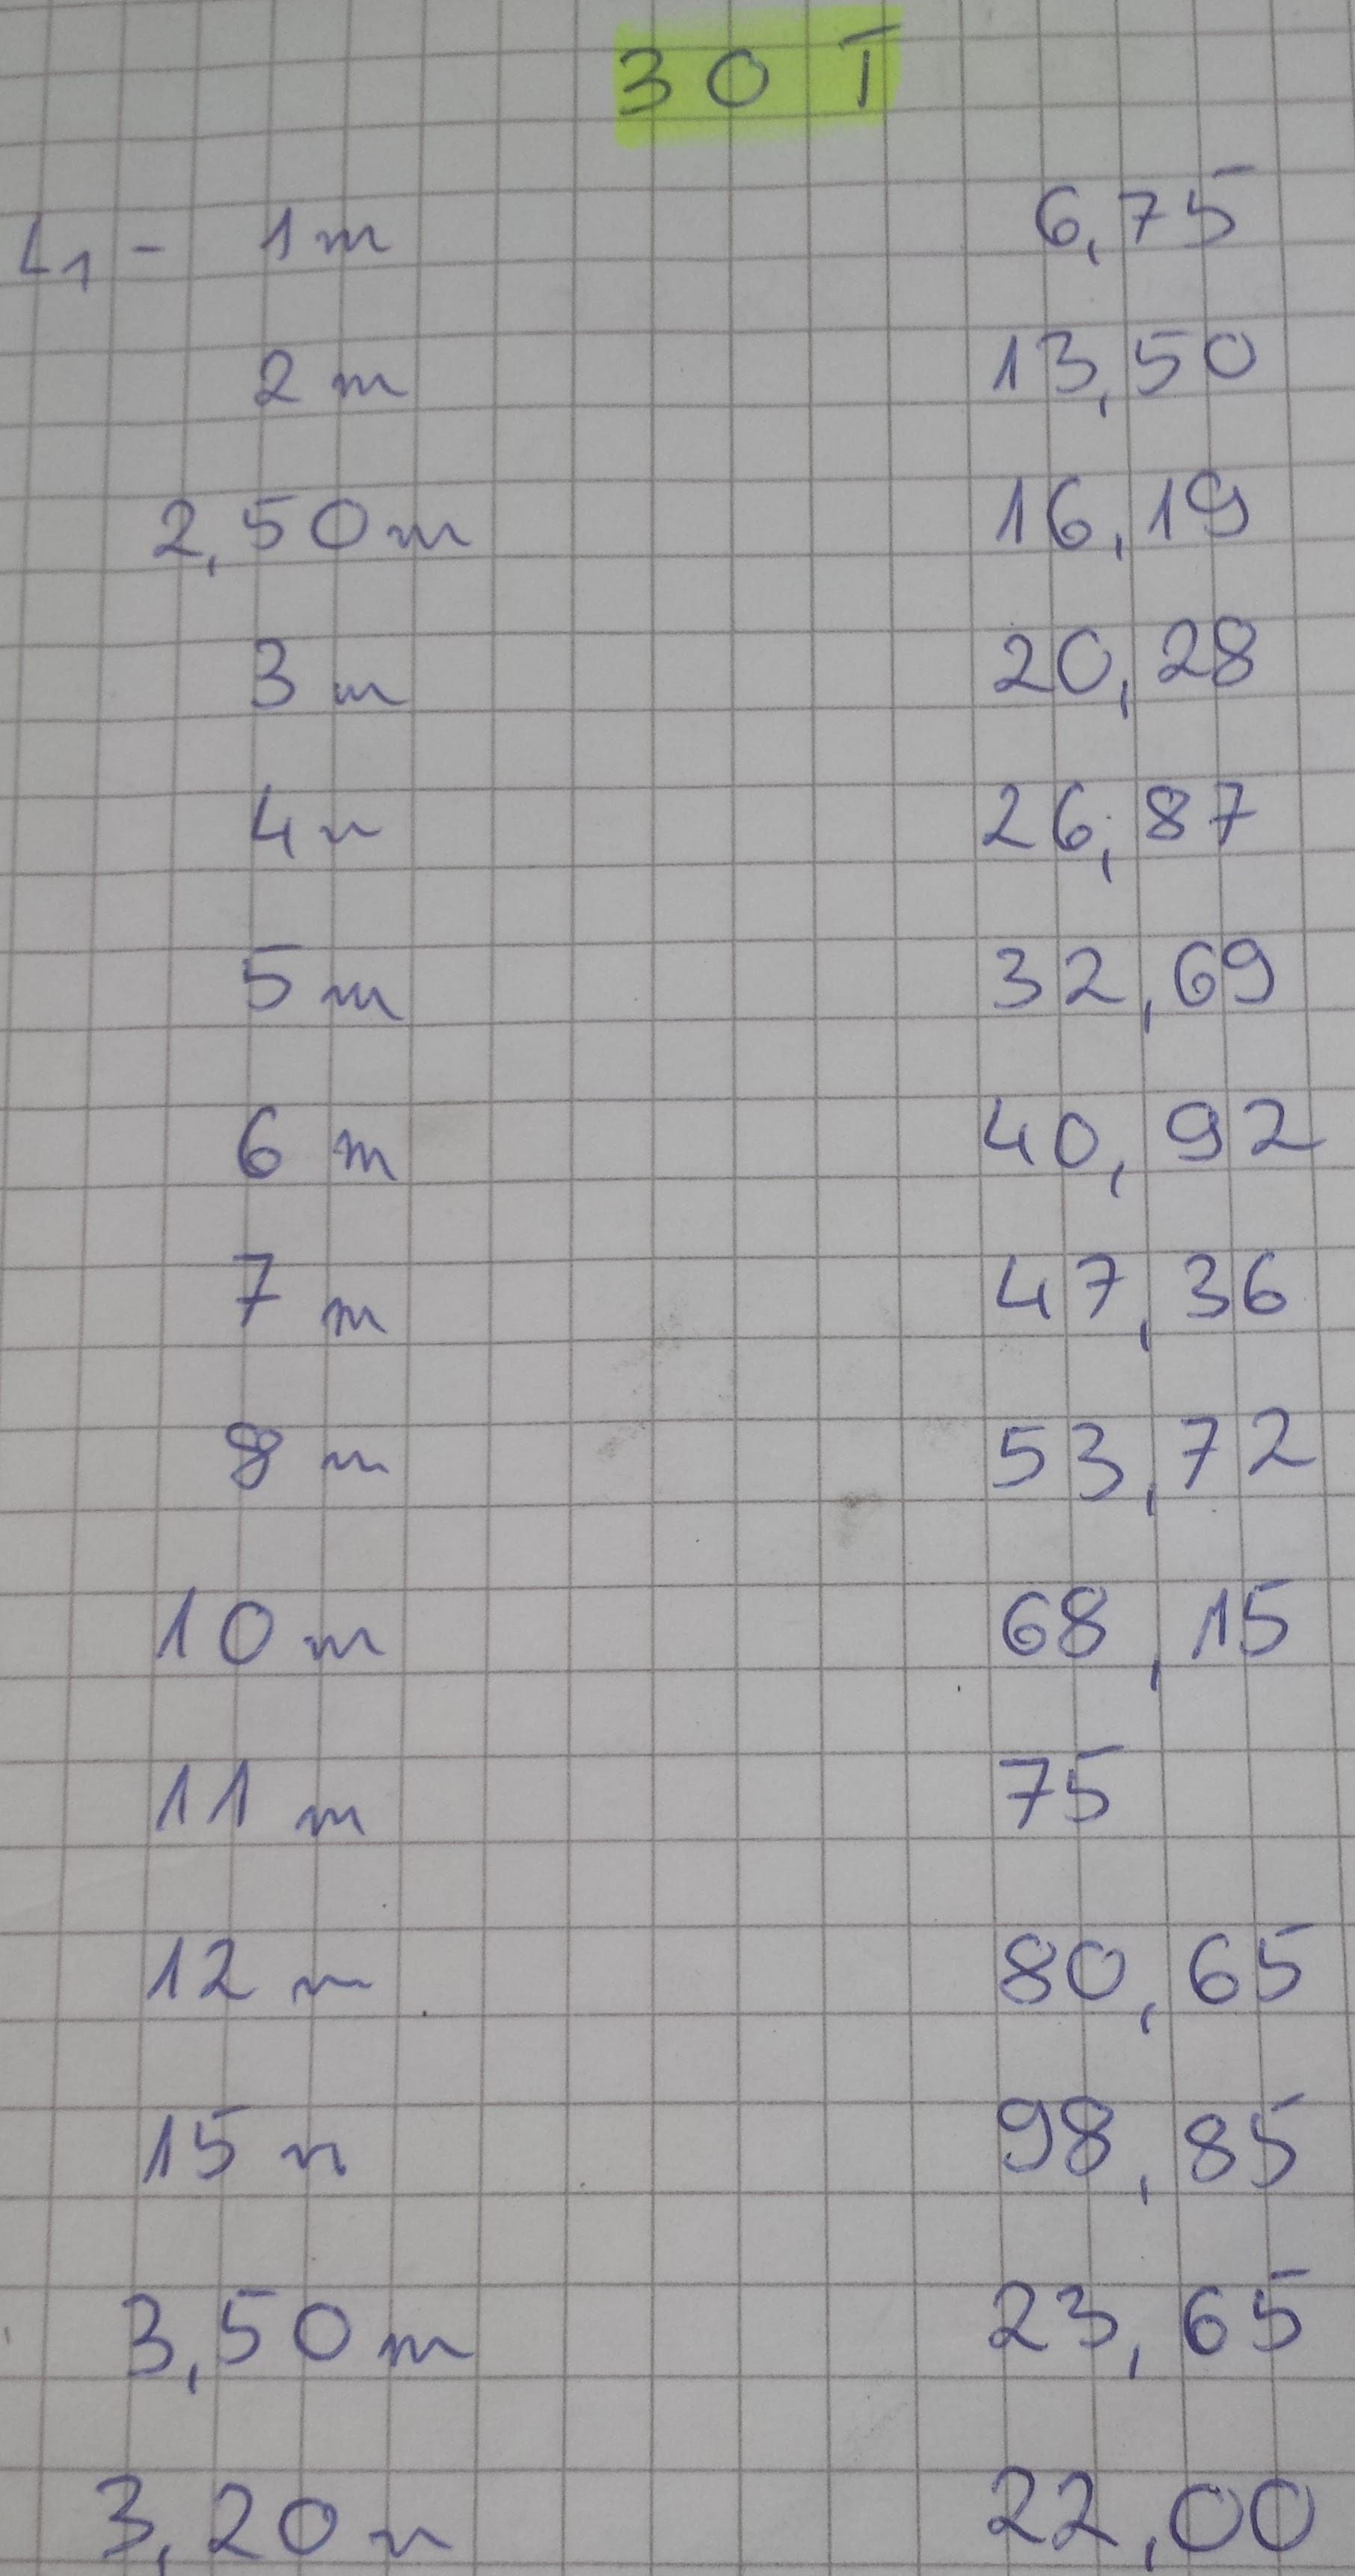 30 T
L1 - 1m 6,75
2m 13,50
2,50m 16,19
3m 20,28
4m 26,87
5m 32,69
6m 40,92
7m 47,36
8m 53,72
10m 68,15
11m 75
12m 80,65
15m 98,85
3,50m 23,65
3,20m 22,00